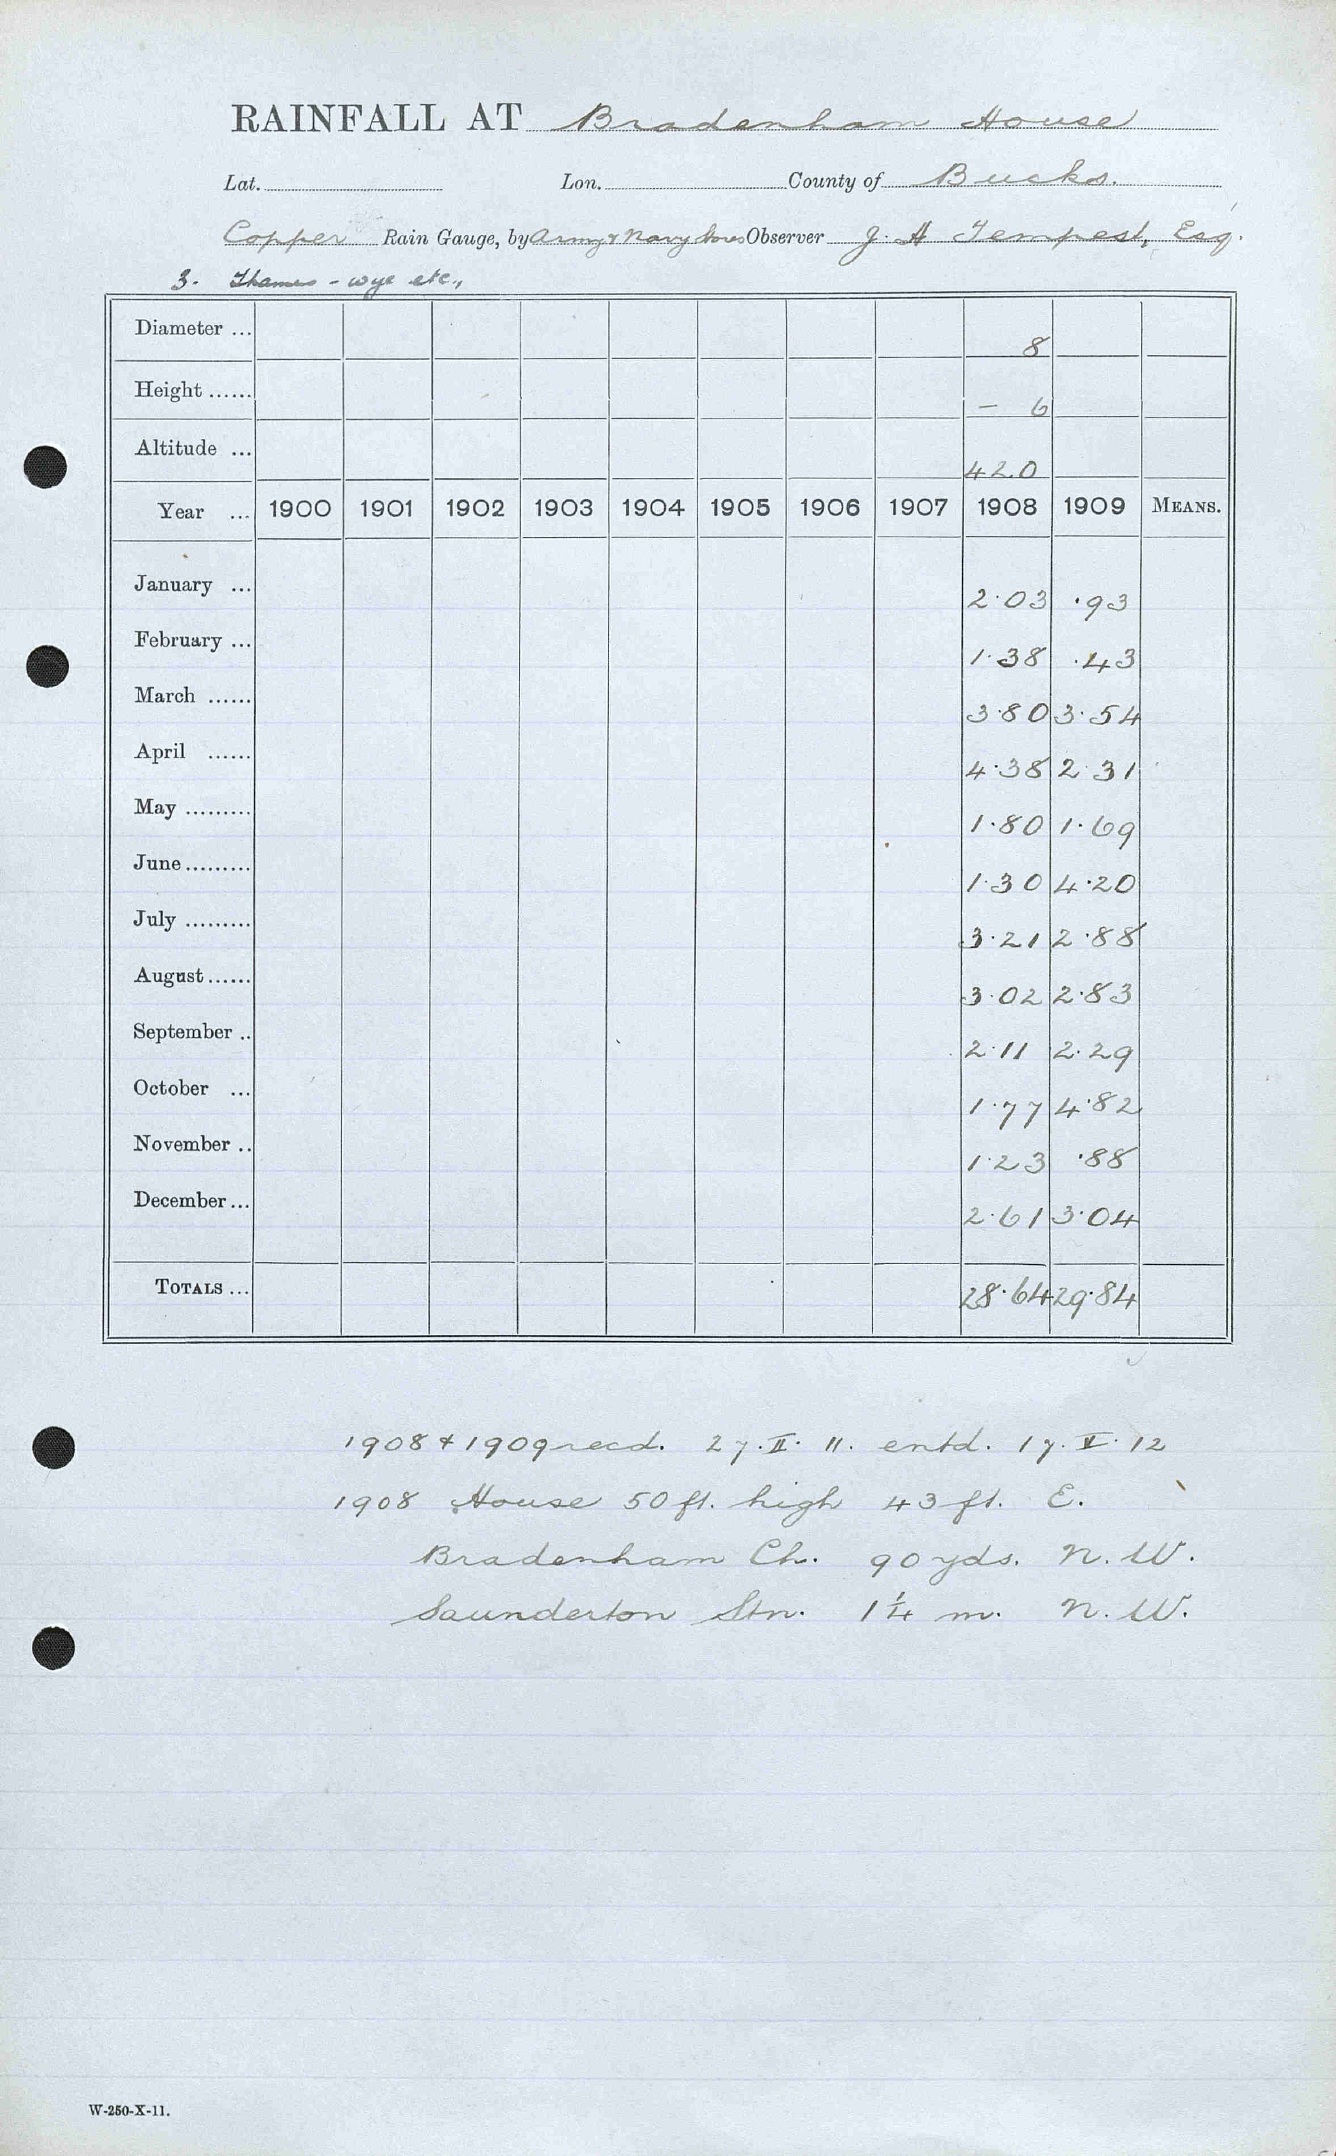 RAINFALL AT Bradenham House
Lat. Lon. County of Bucks.
Copper Rain Gauge, by Army & Navy Stores Observer J. H Tempest, Esq.
3. Thames - Wye etc.,
Diameter ... 8
Height ...... – 6
Altitude ... 420
Year ... 1900 1901 1902 1903 1904 1905 1906 1907 1908 1909 MEANS.
January ... 2.03 .93
February ... 1.38 .43
March ...... 3.80 3.54
April ...... 4.38 2.31
May ......... 1.80 1.69
June ......... 1.30 4.20
July ......... 3.21 2.88
August ...... 3.02 2.83
September .. 2.11 2.29
October ... 1.77 4.82
November .. 1.23 .88
December ... 2.61 3.04
TOTALS ... 28.64 29.84
1908 & 1909 recd. 27.II.11. entd. 17.V.12
1908 House 50 ft. high 43 ft. E.
Bradenham Ch. 90 yds. N.W.
Saunderton Stn. 1¼ m. N.W.
W-250-X-11.